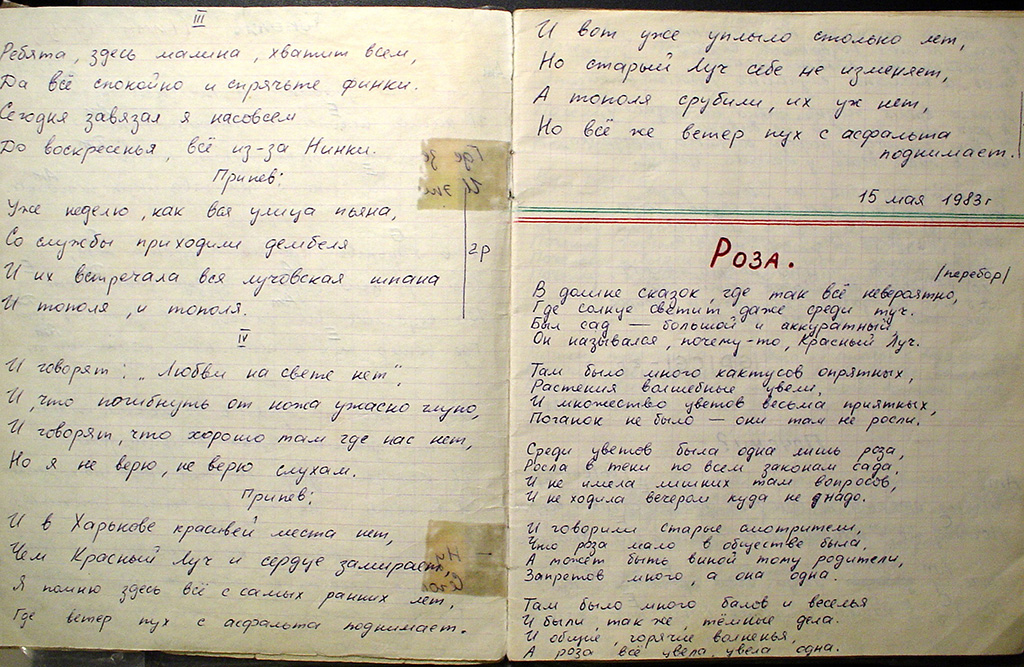 III
Ребята, здесь малина, хватит всем,
Да всё спокойно и спрячьте финки.
Сегодня завязал я насовсем
До воскресенья, всё из-за Нинки.
Припев:
Уже неделю, как вся улица пьяна,
Со службы приходили дембеля
И их встречала вся лучовская шпана
И тополя, и тополя.
2р
IV
И говорят: „Любви на свете нет",
И, что погибнуть от ножа ужасно глупо,
И говорят, что хорошо там где нас нет,
Но я не верю, не верю слухам.
Припев:
И в Харькове красивей места нет,
Чем Красный Луч и сердце замирает,
Я помню здесь всё с самых ранних лет,
Где ветер пух с асфальта поднимает.
Где
И
И вот уже уплыло столько лет,
Но старый Луч себе не изменяет,
А тополя срубили, их уж нет,
Но всё же ветер пух с асфальта
поднимает.
15 мая 1983г
РОЗА.
/перебор/
В долине сказок, где так всё невероятно,
Где солнце светит даже среди туч.
Был сад — большой и аккуратный,
Он назывался, почему-то, Красный Луч.
Там было много кактусов опрятных,
Растения волшебные цвели,
И множество цветов весьма приятных,
Поганок не было — они там не росли.
Среди цветов была одна лишь роза,
Росла в тени по всем законам сада,
И не имела лишних там вопросов,
И не ходила вечером куда не надо.
И говорили старые смотрители,
Что роза мало в обществе была,
А может быть виной тому родители,
Запретов много, а она одна.
Там было много балов и веселья
И были, так же, тёмные дела.
И общие, горячие волненья,
А роза всё цвела, цвела одна.